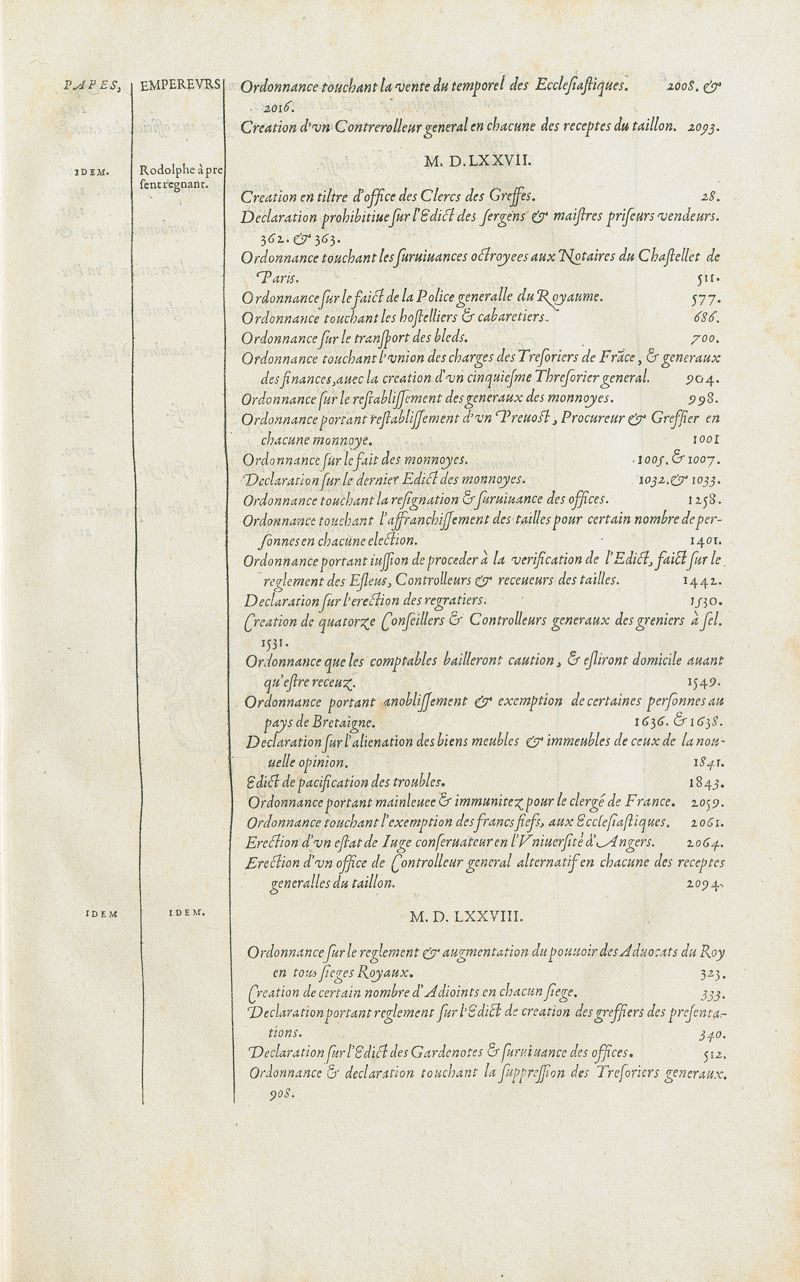 PAPES, EMPEREVRS Ordonnance touchant la vente du temporel des Ecclesiaſtiques. 2008. &
2016.
Creation d'vn Contrerolleur general en chacune des receptes du taillon. 2093.
M. D. LXXVII.
IDEM. Rodolphe à pre
ſent regnant.
Creation en tiltre d'office des Clercs des Greffes. 28.
Declaration prohibitiue ſur l'Edict des ſergens & maiſtres priſeurs vendeurs.
362. & 363.
Ordonnance touchant les ſuruiuances octroyees aux Notaires du Chaſtellet de
Paris. 511.
Ordonnance ſur le faict de la Police generalle du Royaume. 577.
Ordonnance touchant les hoſtelliers & cabaretiers. 686.
Ordonnance ſur le tranſport des bleds. 700.
Ordonnance touchant l'vnion des charges des Treſoriers de Frāce, & generaux
des finances, auec la creation d'vn cinquieſme Threſorier general. 904.
Ordonnance ſur le reſtabliſſement des generaux des monnoyes. 998.
Ordonnance portant reſtabliſſement d'vn Preuoſt, Procureur & Greffier en
chacune monnoye. 1001
Ordonnance ſur le fait des monnoyes. 1005. & 1007.
Declaration ſur le dernier Edict des monnoyes. 1032. & 1033.
Ordonnance touchant la reſignation & ſuruiuance des offices. 1258.
Ordonnance touchant l'affranchiſſement des tailles pour certain nombre de per-
ſonnes en chacune election. 1401.
Ordonnance portant iuſſion de proceder à la verification de l'Edict, faict ſur le
reglement des Eſleus, Controlleurs & receueurs des tailles. 1442.
Declaration ſur l'erection des regratiers. 1530.
Creation de quatorze Conſeillers & Controlleurs generaux des greniers à ſel.
1531.
Ordonnance que les comptables bailleront caution, & eſliront domicile auant
qu'eſtre receuz. 1549.
Ordonnance portant anobliſſement & exemption de certaines perſonnes au
pays de Bretaigne. 1636. & 1638.
Declaration ſur l'alienation des biens meubles & immeubles de ceux de la nou-
uelle opinion. 1841.
Edict de pacification des troubles. 1843.
Ordonnance portant mainleuee & immunitez pour le clergé de France. 2059.
Ordonnance touchant l'exemption des francs fiefs, aux Eccleſiaſtiques. 2061.
Erection d'vn eſtat de Iuge conſeruateur en l'Vniuerſité d'Angers. 2064.
Erection d'vn office de Controlleur general alternatif en chacune des receptes
generalles du taillon. 2094.
IDEM IDEM. M. D. LXXVIII.
Ordonnance ſur le reglement & augmentation du pouuoir des Aduocats du Roy
en tous ſieges Royaux. 323.
Creation de certain nombre d'Adioints en chacun ſiege. 333.
Declaration portant reglement ſur l'Edict de creation des greffiers des preſenta-
tions. 340.
Declaration ſur l'Edict des Gardenotes & ſuruiuance des offices. 512.
Ordonnance & declaration touchant la ſuppreſſion des Treſoriers generaux.
908.